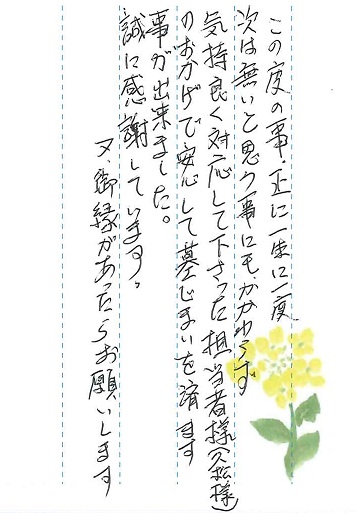 この度の事・正に一生に一度
次は無いと思う事にも、かかわらず
気持良く対応して下さった担当者様(久松様)
のおかげで安心して墓じまいを済ます
事が出来ました。
誠に感謝しています。
又、御縁があったらお願いします